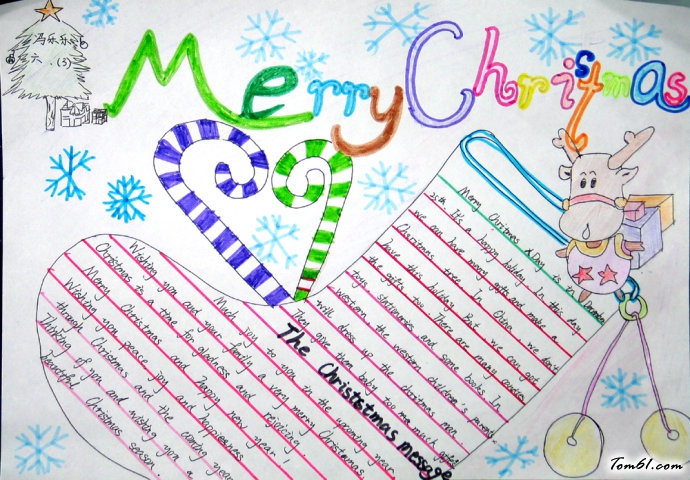 冯乐乐
六.(3)
Merry Christmas
Merry Christmas Day is the December
25th It's a happy holiday In this day
we can have many gifts and make a
Christmas tree In China, we don't
have this holiday But we can got
the gifts, too There are many cookies
toys stationeries and some books In
western, the western children's parents
will dress up the christmas man
Then give them baby too much gifts
The Christstmas message
Wishing you Much joy to you in the upcoming year
Christmas and your family a very merry Christmas
is a time for gladness and rejoicing
Merry Christmas and happy new year!
Wishing you peace joy and happieness
through Christmas and the coming year
Thinking of you and wishing you a
beautiful Christmas season.
Tom61.com